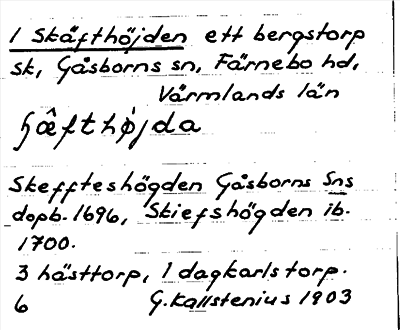 1 Skäfthöjden ett bergstorp
sk, Gåsborns sn, Färnebo hd,
Värmlands län
Skeffteshögden Gåsborns Sns
dopb. 1696, Skiefshögden ib.
1700.
3 hästtorp, 1 dagkarlstorp.
6 G. Kallstenius 1903